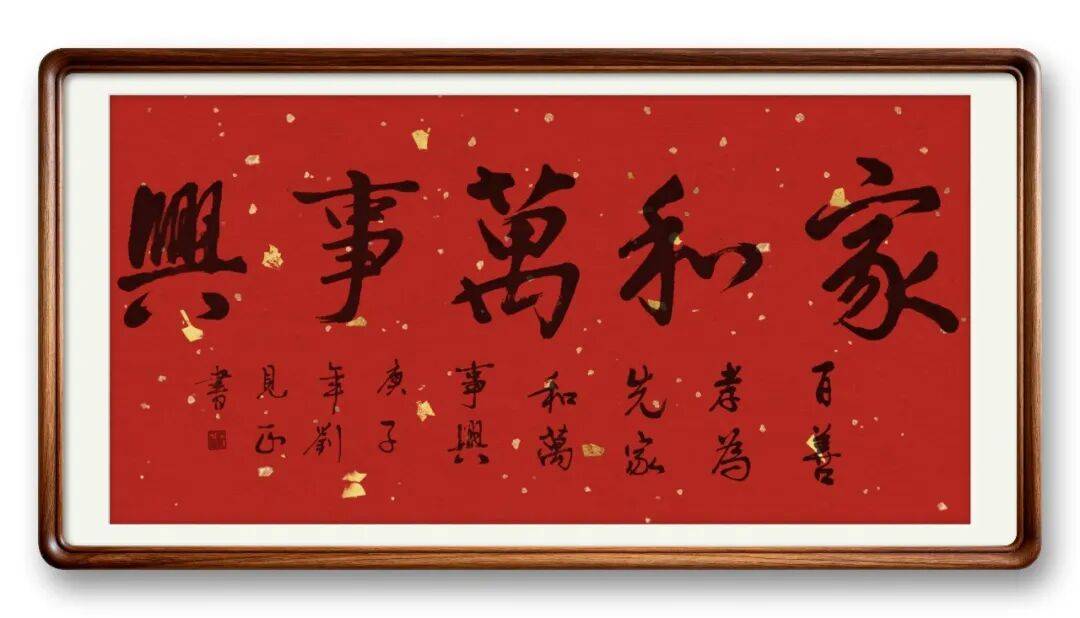 家和萬事興
百善
孝為
先家
和萬
事興
庚子
年劉
見正
書